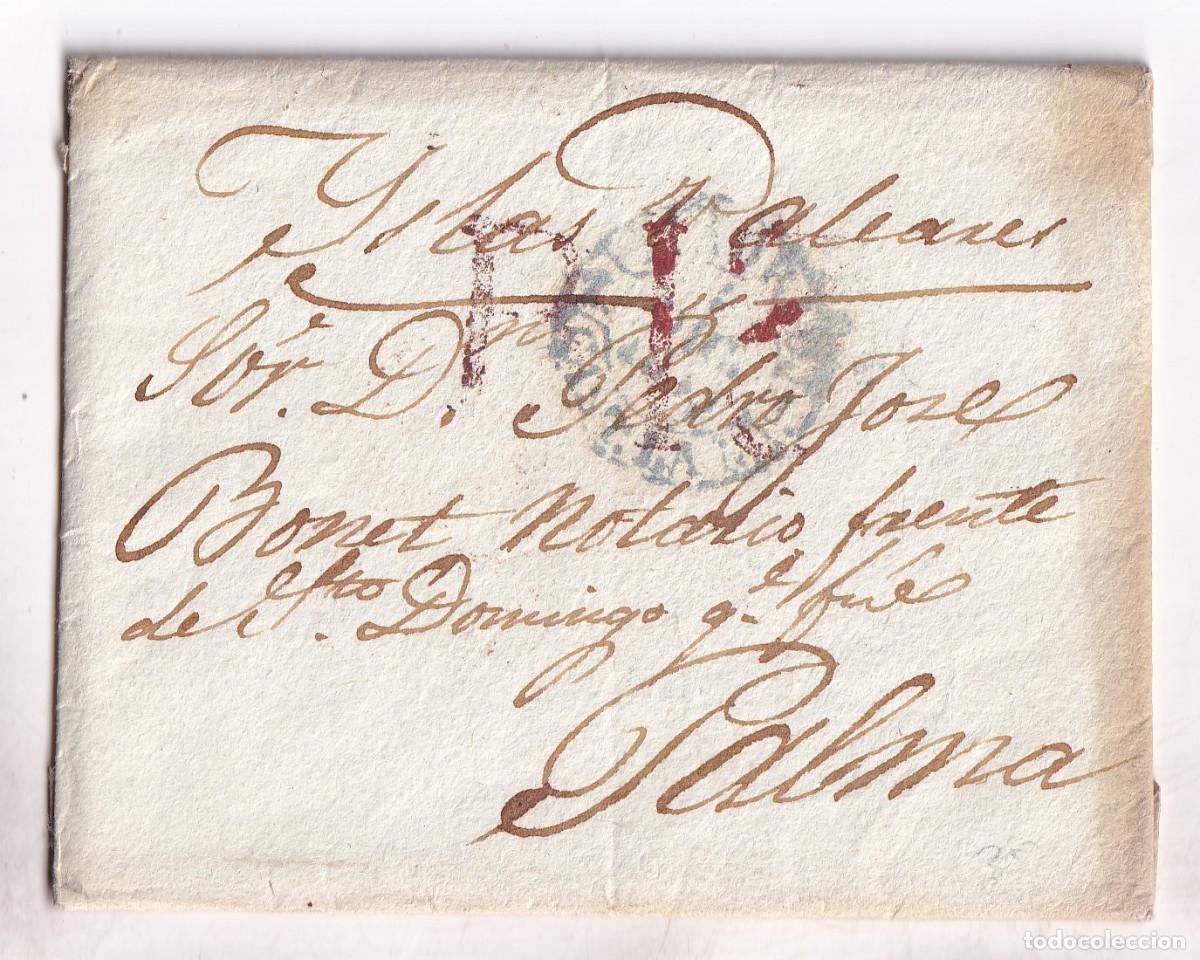 Yslas Baleares
Sor. Dn. Pedro Jose
Bonet Notario frente
de Sto. Domingo q.e fue
Palma
todocoleccion